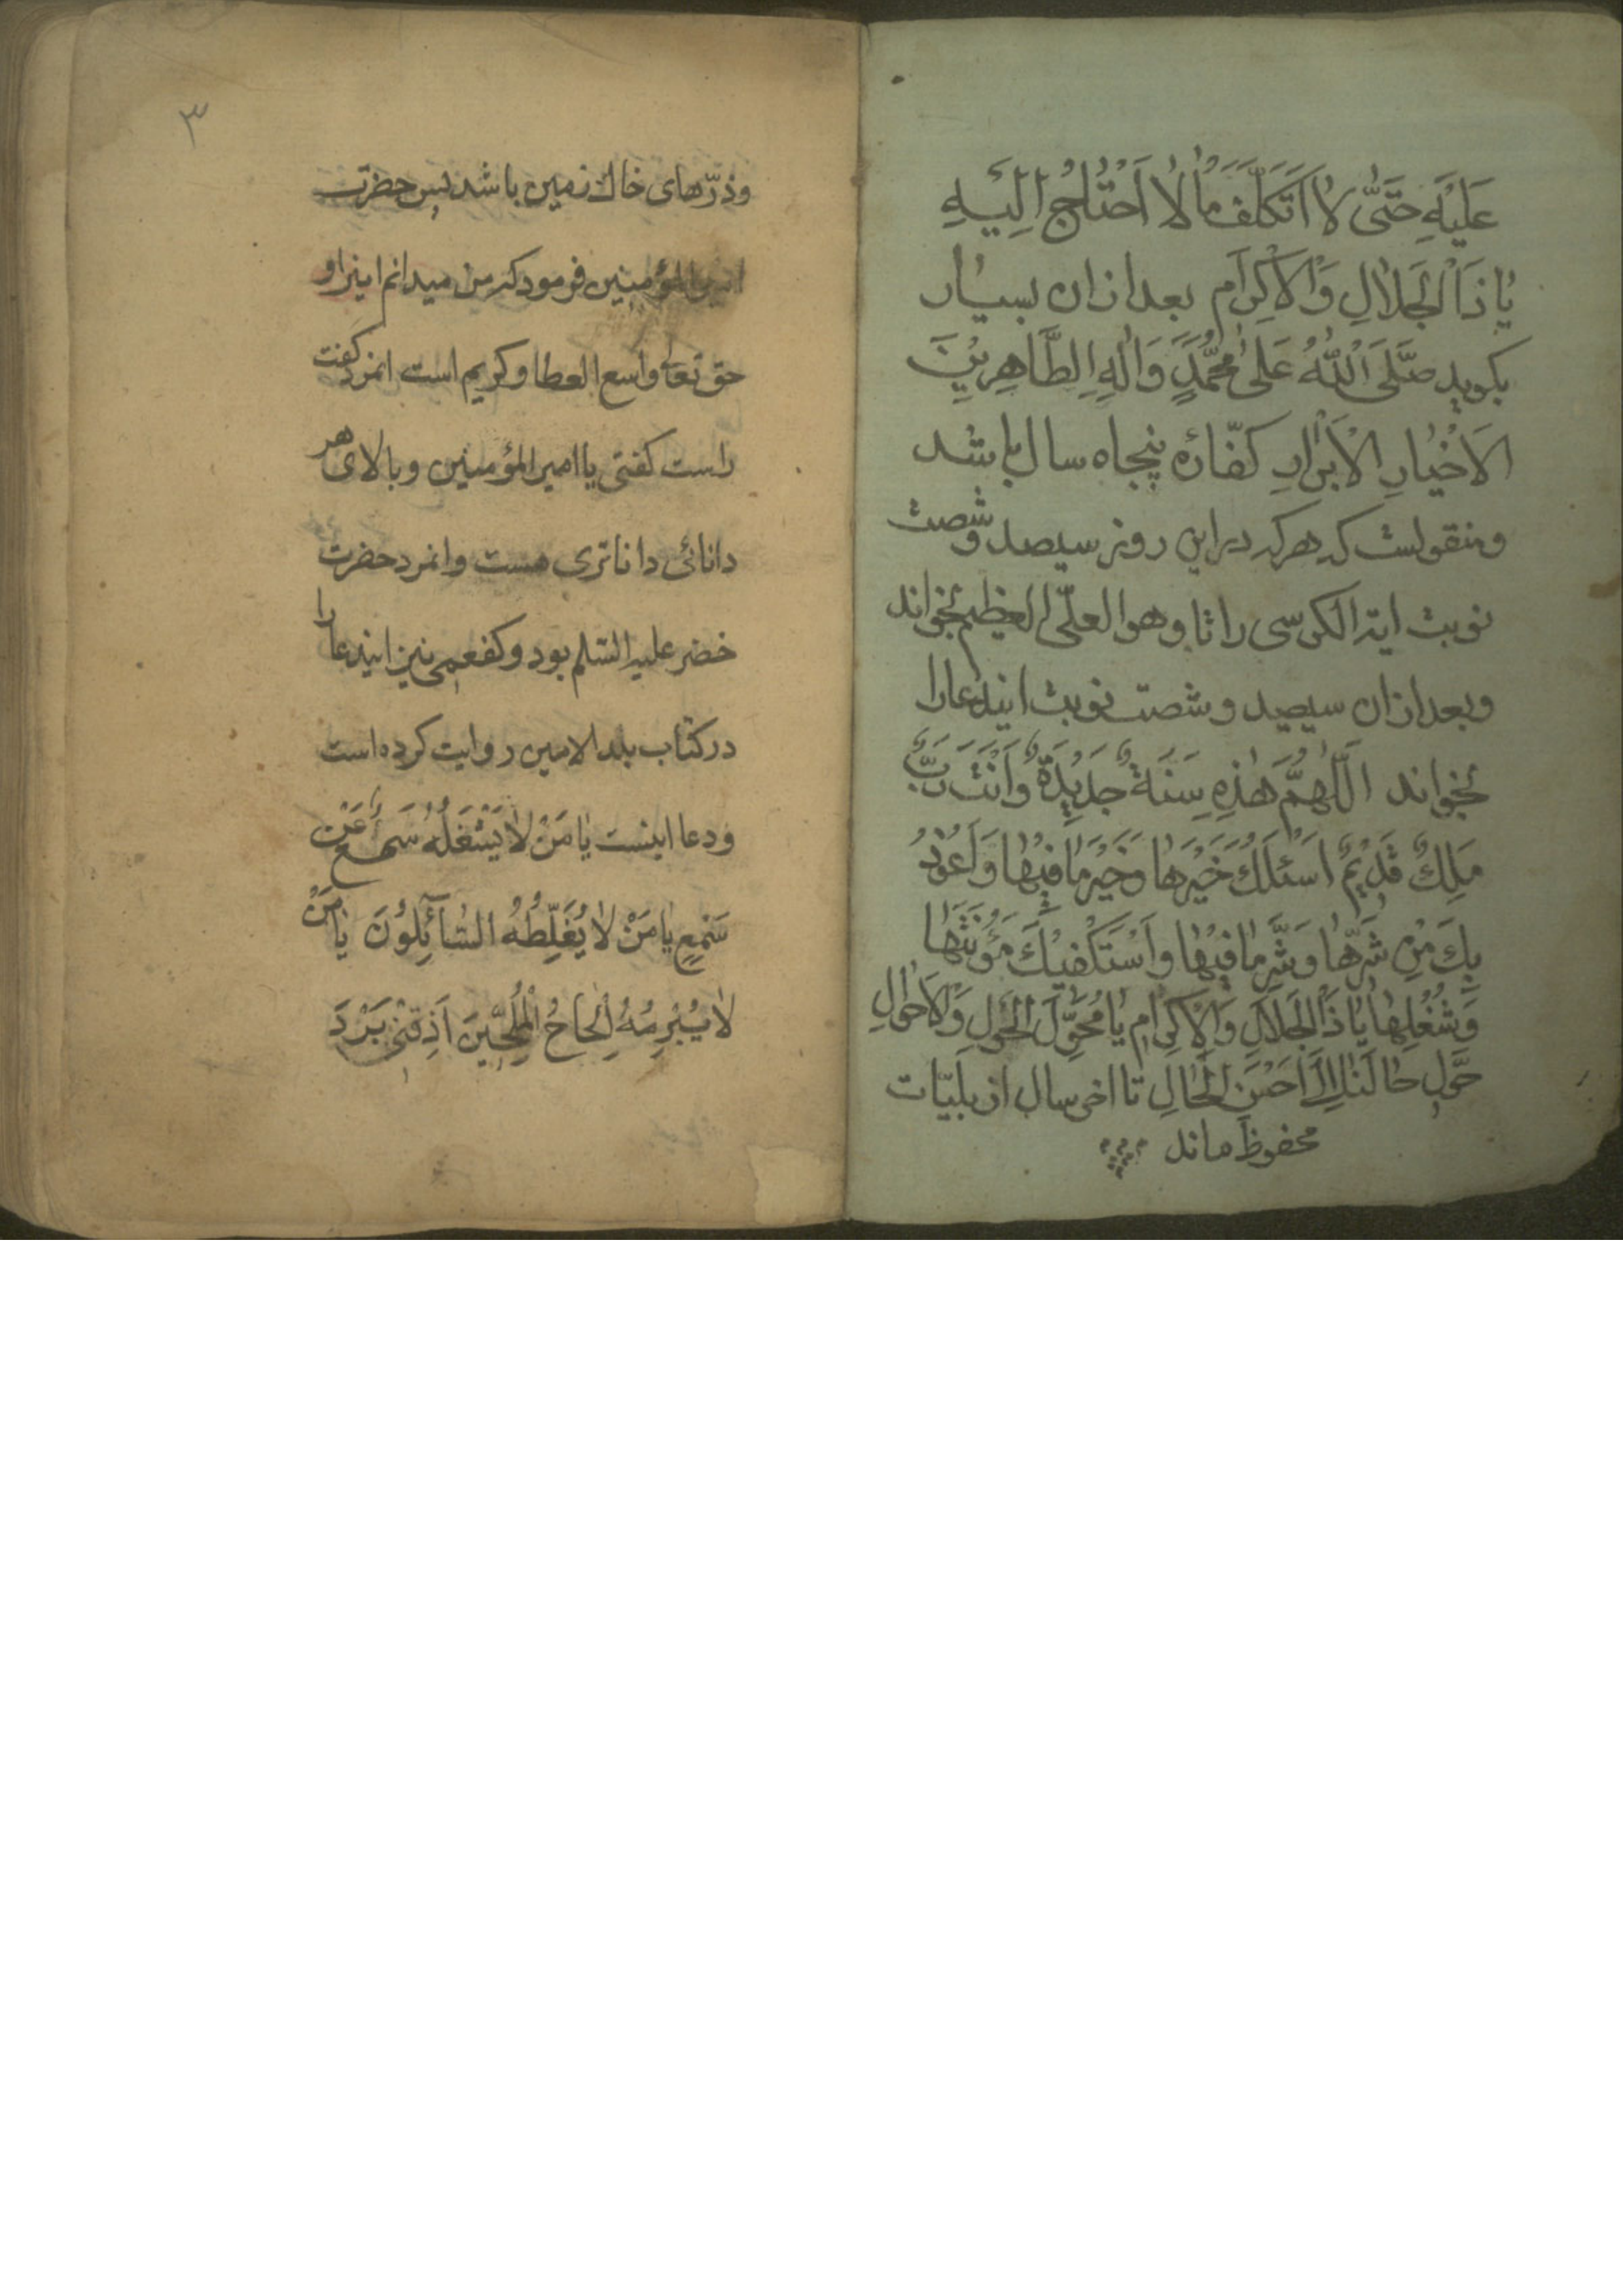 عَلَيْهِ حَتّىٰ لا اَتَكَلَّفَ مٰا لا اَحْتٰاجُ اِلَيْهِ
يٰا ذَا الْجَلٰالِ وَالْاِكْرٰامِ بعد ازان بسیار
بکوید صَلَّی اللّٰهُ عَلیٰ مُحَمَّدٍ وَاٰلِهِ الطَّاهِرِیْنَ
الاَخْیٰارِ الْاَبْرٰارِ کفّارهٔ پنجاه سال باشد
و منقولست که هرکه در این روز سیصد و شصت
نوبت ایة الکرسی را تا وهو العلّی العظیم بخواند
و بعد ازان سیصد و شصت نوبت ایندعا را
بخواند اَللّٰهُمَّ هٰذِهِ سَنَةٌ جَدِیْدَةٌ وَاَنْتَ رَبٌّ
مَلِكٌ قَدِیْمٌ اَسْئَلُكَ خَیْرَهٰا وَخَیْرَ مٰا فِیْهٰا وَاَعُوْذُ
بِكَ مِنْ شَرِّهٰا وَشَرِّ مٰا فِیْهٰا وَاَسْتَكْفِیْكَ مَؤُنَتَهٰا
وَشُغْلَهٰا یٰا ذَا الْجَلٰالِ وَالْاِكْرٰامِ یٰا مُحَوِّلَ الْحَوْلِ وَالْاَحْوٰالِ
حَوِّلْ حٰالَنٰا اِلیٰ اَحْسَنِ الْحٰالِ تا اخر سال از بلیّات
محفوظ ماند
۳
وذرّهای خاك زمین باشد پس حضرت
امیر المؤمنین فرمود که من میدانم اینرا و
حق تعالی واسع العطا و کریم است انمرد کفت
راست کفتی یا امیر المؤمنین و بالای هر
دانائی داناتری هست وانمرد حضرت
خضر علیه السّلم بود و کفعمی نیز ایندعا را
در کتاب بلد الامین روایت کرده است
ودعا اینست یٰا مَنْ لٰا یَشْغَلُهُ سَمْعٌ عَنْ
سَمْعٍ یٰا مَنْ لٰا یُغَلِّطُهُ السّٰآئِلُوْنَ یٰا مَنْ
لٰا یُبْرِمُهُ اِلْحٰاحُ الْمُلِحِّیْنَ اَذِقْنِیْ بَرْدَ